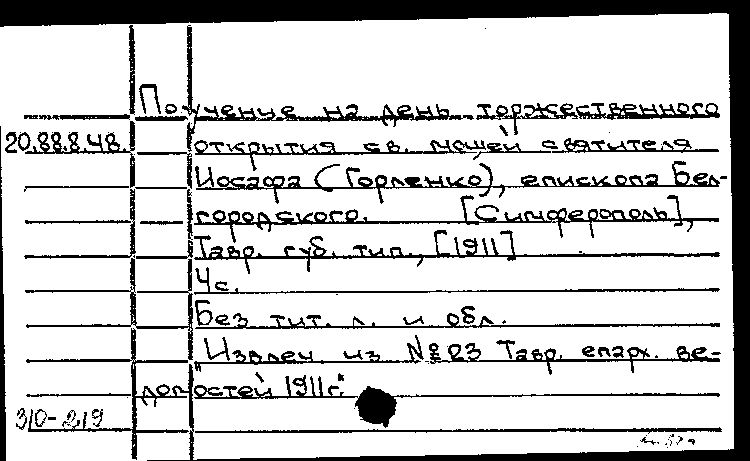 Поучение на день торжественного
20.88.8.48. открытия св. мощей святителя
Иосафа (Горленко), епископа Бел-
городского. [Симферополь],
Тавр. губ. тип., [1911]
4с.
Без тит. л. и обл.
"Извлеч. из №23 Тавр. епарх. ве-
домостей 1911г."
310-219